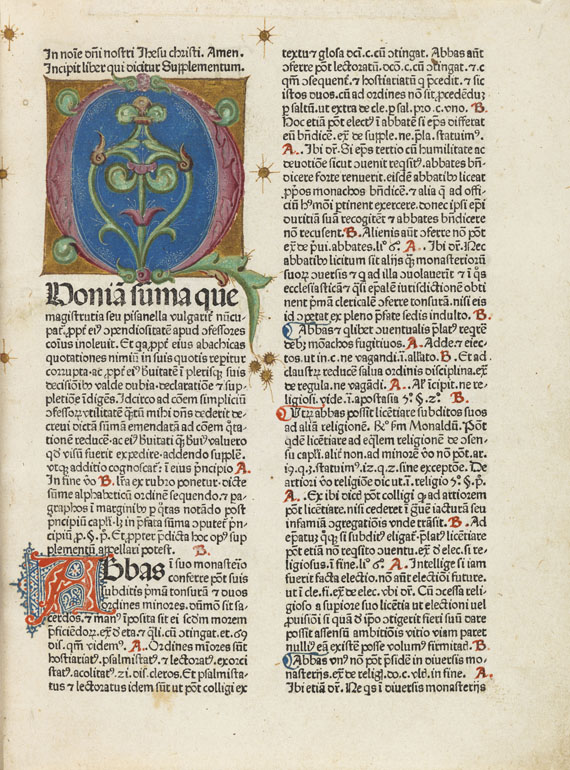 In noie dni nostri Ihesu christi. Amen.
Incipit liber qui dicitur Supplementum.
Quoniā sūma que
magistrutia seu pisanella vulgarit nūcu-
pat, ꝓpt ei⁹ ↄpendiositatē apud ↄfessores
cōius inoleuit. Et qa, ꝓpt eius abachicas
quotationes nimiū in suis quotis repitur
corrupta. ac, ꝓpt ei⁹ ḃuitatē ī plerisqꝫ suis
decisiōib⁹ valde dubia. declaratiōe ⁊ sup-
pletiōe īdiges. Idcirco ad cōem simpliciū
ↄfessorꝝ vtilitatē q̄tū mihi dn̄s dederit de-
creui dictā sūmā emendatā ad cōem q̄ta-
tionē reducē. ac ei⁹ ḃuitati qꝫ ḃui⁹ valuero
qd visū fuerit expedire. addendo supplē.
vtqꝫ additio cognoscat, ī eius pn̄cipio A.
In fine vo B. lr̄a ex rubro ponetur. dictę
sūme alphabeticū ordinē sequendo. ⁊ pa-
graphos ī marginib⁹ ꝑ q̄tas notādo post
pncipiū capli. lꝫ in p̄fata sūma ↄputet pn̄-
cipiū, ꝓ. §. p̄. Et, ꝓpter p̄dicta hoc op⁹ sup
plementū appellari potest. B.
Abbas ī suo monastēio
conferre pōt suis
subditis pmā tonsurā ⁊ duos
ordines minores. dūmō sit sa-
cerdos. ⁊ man⁹ īposita sit ei scdm morem
p̄ficiēdorꝝ. ex de eta. ⁊ q̄li. cū ↄtingat. et. 69
dis. qm̄ videm⁹. A.. Ordines mīores sūt
hostiariat⁹. psalmistat⁹. ⁊ lectorat⁹. exorci
stat⁹. acolitat⁹. 21. dis. cleros. Et psalmista-
tus ⁊ lectoratus idem sūt. ut pōt colligi ex
textu ⁊ glosa dcā. c. cū ↄtingat. Abbas aūt
ↄferre pōt lectoratū. dcō. c. cū ↄtingat. ⁊. c
qm̄ ↄsequent. ⁊ hostiariatū q̄ p̄cedit. ⁊ sic
istos duos. cū ad ordines nō sit, pcedēduꝫ
ꝑ saltū. ut extra de cle. ꝑ sal. pro. c. vno. B.
Hoc etiā pōt elect⁹ ī abbatē si ep̄s differat
eū bn̄dicē. ex de supple. ne. pla. statuim⁹.
A.. Ibi dr̄. Si ep̄s tertio cū humilitate ac
deuotiōe sicut ↄuenit reqsit⁹. abbates bn̄-
dicere forte renuerit. eisdē abbatib⁹ liceat
ꝓpos monachos bn̄dicē. ⁊ alia q̄ ad offi-
ciū hmōi ptinent exercere. donec ipsi ep̄i
duritiā suā recogitēt ⁊ abbates bn̄dicere
nō recusent. B. Alienis aūt ↄferre nō pōt
ex de pui. abbates. li⁰ 6. A.. Ibi dr̄. Nec
abbatib⁹ licitum sit alijs qꝫ monasteriorū
suoꝝ ↄuersis ⁊ q ad illa ↄuolauerit ⁊ ī q̄s
ecclesiasticā ⁊ q̄si epalē iurisdictionē obti
nent pmā clericalē ↄferre tonsurā. nisi eis
id ↄpetat ex pleno p̄fate sedis indulto. B.
Abbas ⁊ qlibet ↄuentualis p̄lat⁹ reqrē
debꝫ mōachos fugitiuos. A.. Adde. ⁊ eiec-
tos. ut in. c. ne vagandi. ī. allato. B. Et ad
claustrꝝ reducē salua ordinis disciplina. ex
de regula. ne vagādi. A.. Ar̄ īcipit. ne re-
ligiosi. vide. ī. apostasia 5⁰. §. 2⁰. B.
Utrꝝ abbas possit līcētiare subditos suos
ad aliā religionē. Rn̄⁰ fm Monaldū. Pōt
qdē licētiare ad eqlem religionē de ↄsen-
su capli. alit non. ad minorē v̄o nō pōt. ar̄.
19. q. 3. statuim⁹. 12. q. 2. sine exceptōe. De
artiori vo religiōe dic ut. ī. religio 5⁰. §. p̄.
A.. Ex ibi dict⁹ pōt colligi q ad artiorem
pōt licētiare. nisi cederet ī gu̅e iacturā seu
infamiā ↄgregatiōis vnde trāsit. B.. Ad
eꝑatuꝫ qꝫ: si subdit⁹ eligat p̄lat⁹ licētiare
pōt etiā nō reqsito ↄuentu. ex d̄ elec. si re-
ligiosus. ī fine. li⁰ 6. A.. Intellige si iam
fuerit facta electio. nō aūt electiōi future.
ut ī cle. fi. ex de elec. vbi dr̄. Cū ↄcessa reli-
gioso a supiore suo licētia ut electioni uel
ꝓuisioni si quā d̄ ipo ↄtigerit fieri suū dare
possit assensū ambitiōis vitio viam paret
nulli⁹ eā existere posse volum⁹ firmitat. B.
Abbas vn⁹ nō pōt p̄sidē in diuersis mo-
nasterijs. ex de relig. do. c. vlt. in fine. A.
Ibi etiā dr̄. Ne qs ī diuersis monasterijs